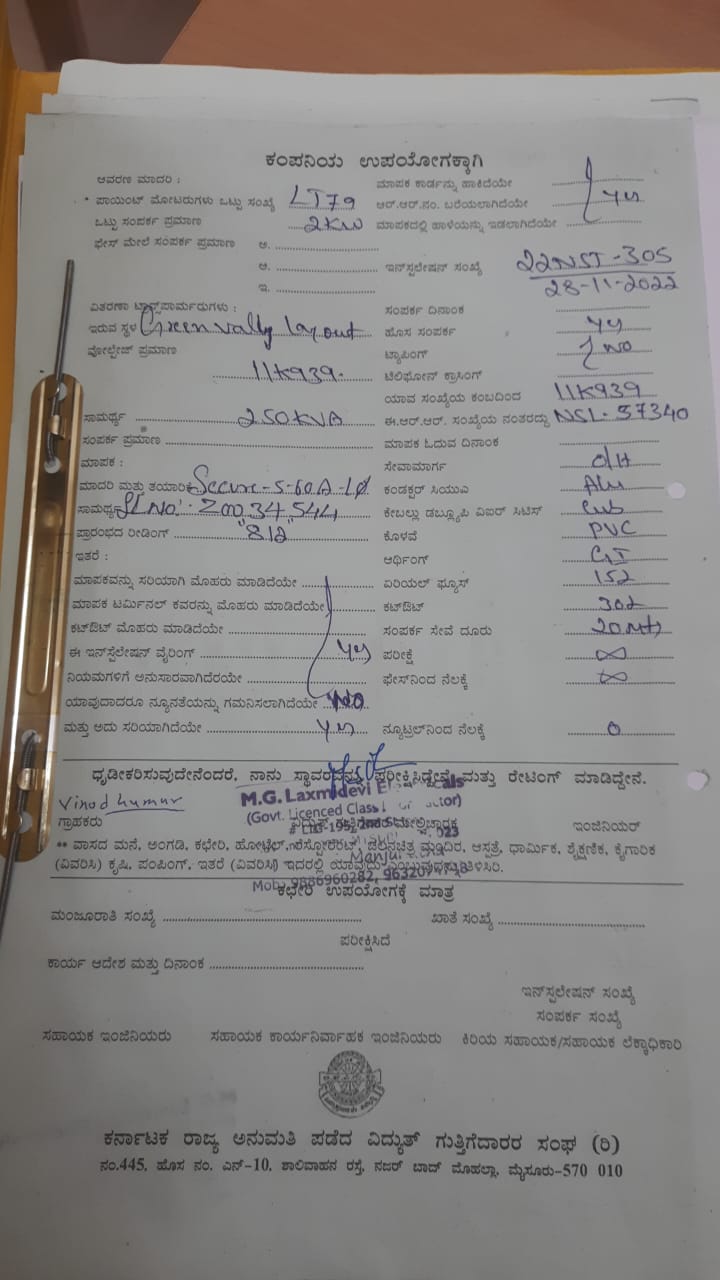 ಕಂಪನಿಯ ಉಪಯೋಗಕ್ಕಾಗಿ
ಆವರಣ ಮಾದರಿ : ಮಾಪಕ ಕಾರ್ಡನ್ನು ಹಾಕಿದೆಯೇ
* ಪಾಯಿಂಟ್ ಮೋಟರುಗಳು ಒಟ್ಟು ಸಂಖ್ಯೆ LT79 ಆರ್.ಆರ್.ನಂ. ಬರೆಯಲಾಗಿದೆಯೇ yes
ಒಟ್ಟು ಸಂಪರ್ಕ ಪ್ರಮಾಣ 2KW ಮಾಪಕದಲ್ಲಿ ಹಾಳೆಯನ್ನು ಇಡಲಾಗಿದೆಯೇ
ಫೇಸ್ ಮೇಲೆ ಸಂಪರ್ಕ ಪ್ರಮಾಣ ಅ.
ಆ. ಇನ್‌ಸ್ಪಲೇಷನ್ ಸಂಖ್ಯೆ 22NST-305
ಇ. 28-11-2022
ವಿತರಣಾ ಟ್ರಾನ್ಸ್‌ಪಾರ್ಮರುಗಳು : ಸಂಪರ್ಕ ದಿನಾಂಕ
ಇರುವ ಸ್ಥಳ Green vally layout ಹೊಸ ಸಂಪರ್ಕ yes
ವೋಲ್ಟೇಜ್ ಪ್ರಮಾಣ ಟ್ಯಾಪಿಂಗ್ No
11K939 ಟೆಲಿಫೋನ್ ಕ್ರಾಸಿಂಗ್
ಯಾವ ಸಂಖ್ಯೆಯ ಕಂಬದಿಂದ 11K939
ಸಾಮರ್ಥ್ಯ 250KVA ಈ.ಆರ್.ಆರ್. ಸಂಖ್ಯೆಯ ನಂತರದ್ದು NSL-57340
ಸಂಪರ್ಕ ಪ್ರಮಾಣ ಮಾಪಕ ಓದುವ ದಿನಾಂಕ
ಮಾಪಕ : ಸೇವಾಮಾರ್ಗ O/H
ಮಾದರಿ ಮತ್ತು ತಯಾರಿಕೆ Secure-5-60A-1Ø ಕಂಡಕ್ಟರ್ ಸಿಯುಎ Alu
ಸಾಮರ್ಥ್ಯ SL No: Z0034544 ಕೇಬಲ್ಲು ಡಬ್ಲ್ಯೂಪಿ ವಿಐರ್ ಸಿಟಿಸ್
ಪ್ರಾರಂಭದ ರೀಡಿಂಗ್ ಕೊಳವೆ PVC
ಇತರೆ : ಆರ್ಥಿಂಗ್ GI
ಮಾಪಕವನ್ನು ಸರಿಯಾಗಿ ಮೊಹರು ಮಾಡಿದೆಯೇ ಏರಿಯಲ್ ಫ್ಯೂಸ್
ಮಾಪಕ ಟರ್ಮಿನಲ್ ಕವರನ್ನು ಮೊಹರು ಮಾಡಿದೆಯೇ ಕಟ್‌ಔಟ್
ಕಟ್‌ಔಟ್ ಮೊಹರು ಮಾಡಿದೆಯೇ ಸಂಪರ್ಕ ಸೇವೆ ದೂರು 20Mts
ಈ ಇನ್‌ಸ್ಪೆಲೇಷನ್ ವೈರಿಂಗ್ yes ಪರೀಕ್ಷೆ ∞
ನಿಯಮಗಳಿಗೆ ಅನುಸಾರವಾಗಿದೆರಯೇ ಫೇಸ್‌ನಿಂದ ನೆಲಕ್ಕೆ ∞
ಯಾವುದಾದರೂ ನ್ಯೂನತೆಯನ್ನು ಗಮನಿಸಲಾಗಿದೆಯೇ No
ಮತ್ತು ಅದು ಸರಿಯಾಗಿದೆಯೇ yes ನ್ಯೂಟ್ರಲ್‌ನಿಂದ ನೆಲಕ್ಕೆ 0
ಧೃಡೀಕರಿಸುವುದೇನೆಂದರೆ, ನಾನು ಸ್ಥಾವರವನ್ನು ಪರೀಕ್ಷಿಸಿದ್ದೇನೆ ಮತ್ತು ರೇಟಿಂಗ್ ಮಾಡಿದ್ದೇನೆ.
Vinod kumar M.G. Laxmidevi
(Govt. Licenced Class
ಗ್ರಾಹಕರು ಇಂಜಿನಿಯರ್
** ವಾಸದ ಮನೆ, ಅಂಗಡಿ, ಕಛೇರಿ, ಹೋಟೆಲ್, ಮಂದಿರ, ಆಸ್ಪತ್ರೆ, ಧಾರ್ಮಿಕ, ಶೈಕ್ಷಣಿಕ, ಕೈಗಾರಿಕ
(ವಿವರಿಸಿ) ಕೃಷಿ, ಪಂಪಿಂಗ್, ಇತರೆ (ವಿವರಿಸಿ) ಇದರಲ್ಲಿ ತಿಳಿಸಿರಿ.
Mob: 9886960282,
ಕಛೇರಿ ಉಪಯೋಗಕ್ಕೆ ಮಾತ್ರ
ಮಂಜೂರಾತಿ ಸಂಖ್ಯೆ ಖಾತೆ ಸಂಖ್ಯೆ
ಪರೀಕ್ಷಿಸಿದೆ
ಕಾರ್ಯ ಆದೇಶ ಮತ್ತು ದಿನಾಂಕ
ಇನ್‌ಸ್ಪಲೇಷನ್ ಸಂಖ್ಯೆ
ಸಂಪರ್ಕ ಸಂಖ್ಯೆ
ಸಹಾಯಕ ಇಂಜಿನಿಯರು ಸಹಾಯಕ ಕಾರ್ಯನಿರ್ವಾಹಕ ಇಂಜಿನಿಯರು ಕಿರಿಯ ಸಹಾಯಕ/ಸಹಾಯಕ ಲೆಕ್ಕಾಧಿಕಾರಿ
ಕರ್ನಾಟಕ ರಾಜ್ಯ ಅನುಮತಿ ಪಡೆದ ವಿದ್ಯುತ್ ಗುತ್ತಿಗೆದಾರರ ಸಂಘ (ರಿ)
ನಂ.445, ಹೊಸ ನಂ. ಎನ್-10, ಶಾಲಿವಾಹನ ರಸ್ತೆ, ನಜರ್ ಬಾದ್ ಮೊಹಲ್ಲಾ, ಮೈಸೂರು-570 010